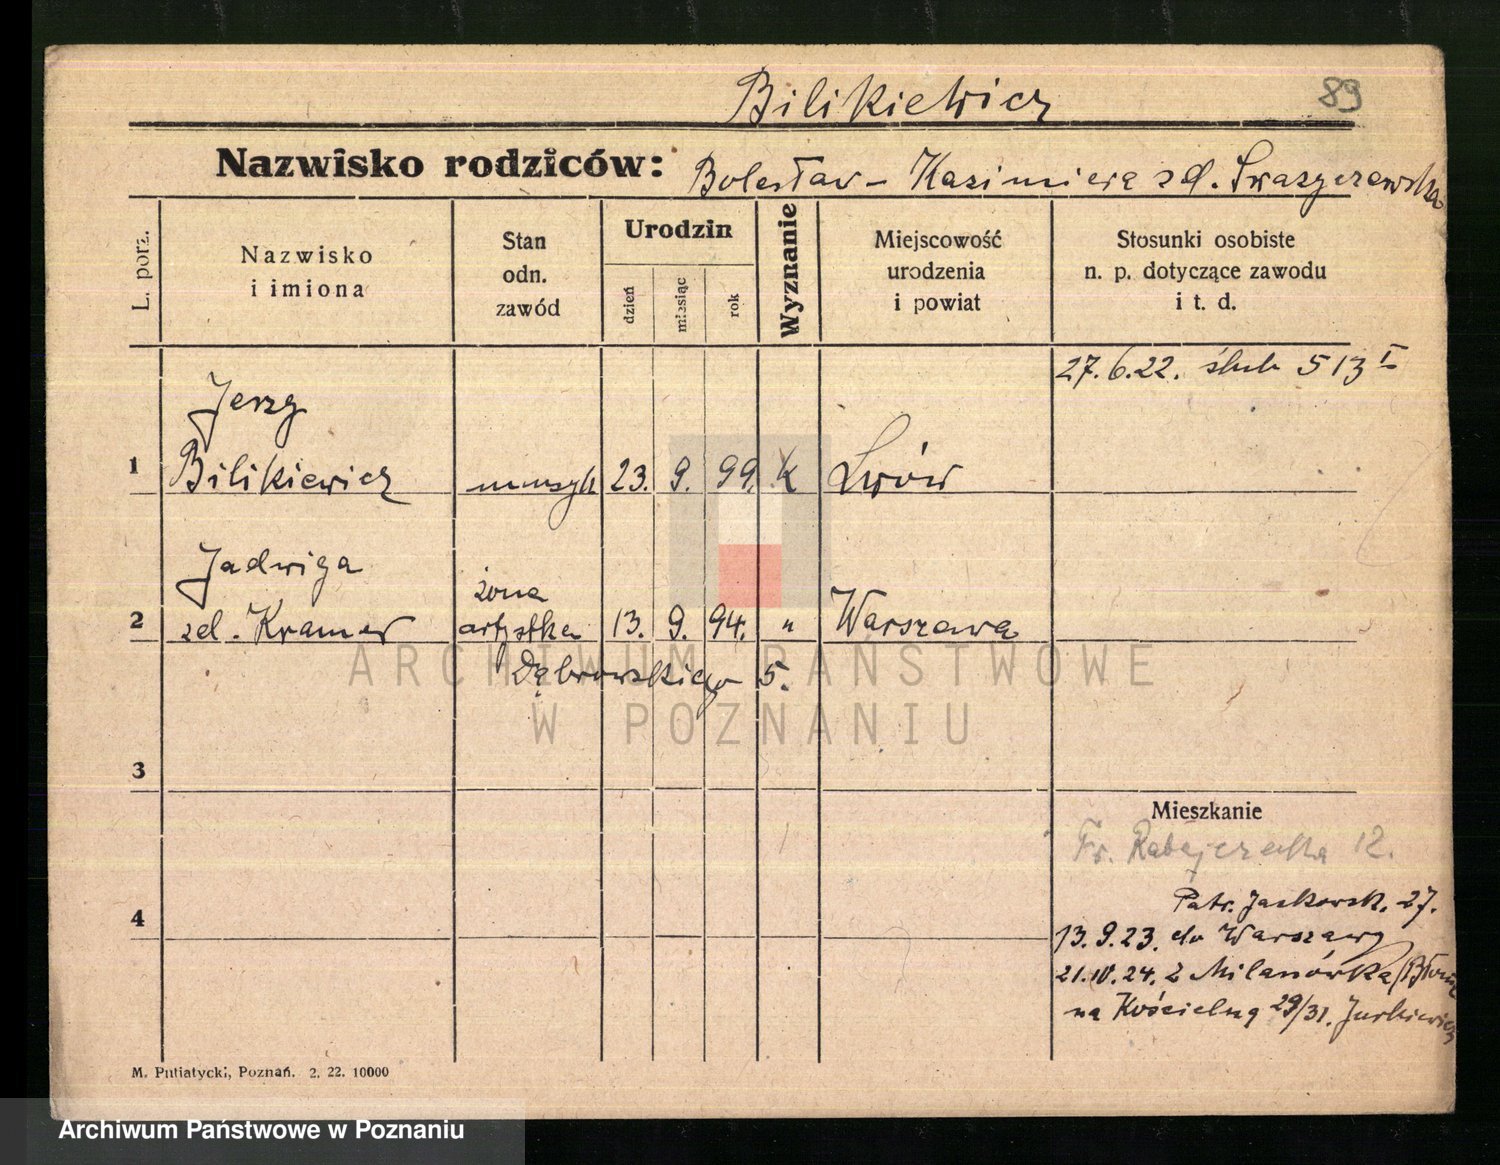 Bilikiewicz 89
Nazwisko rodziców: Bolesław – Kazimiera zd.
L. porz.
Nazwisko
i imiona
Stan
odn.
zawód
Urodzin
dzień
miesiąc
rok
Wyznanie
Miejscowość
urodzenia
i powiat
Stosunki osobiste
n. p. dotyczące zawodu
i t. d.
27.6.22. ślub 513 I
Jerzy
1 Bilikiewicz muzyk 23. 9. 99. k Lwów
Jadwiga
żona
2 zd. Kramer artystka 13. 9. 94. " Warszawa
Dąbrowskiego 5.
3
Mieszkanie
Fr. Ratajczaka 12.
Patr. Jackowsk. 27.
4
13.9.23. do Warszawy
21.IV.24. z Milanówka/Błonie
na Kościelną 29/31. Jurkiewicz
M. Putiatycki, Poznań. 2. 22. 10000
ARCHIWUM PAŃSTWOWE
W POZNANIU
Archiwum Państwowe w Poznaniu